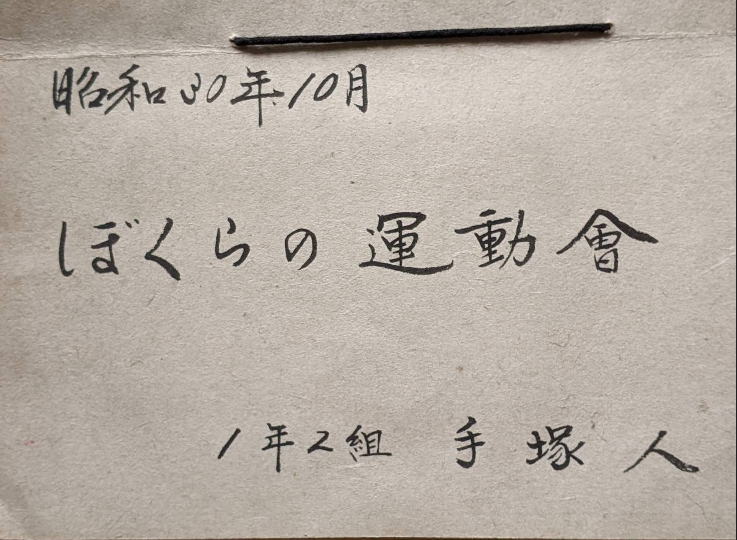 昭和30年10月
ぼくらの運動會
1年2組 手塚人